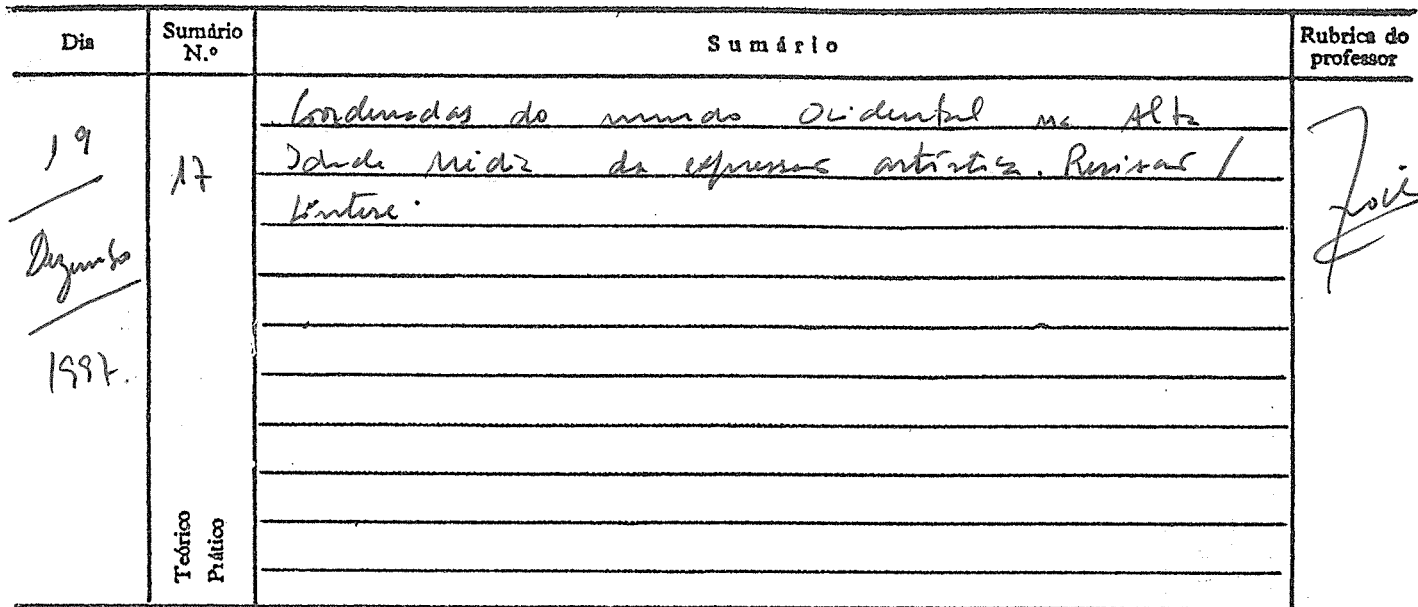 Dia
Sumário N.º
Sumário
Rubrica do professor
19
Dezembro
1997.
17
Coordenadas do mundo Ocidental na Alta
Idade Média da expressão artística. Revisão /
Síntese.
Teórico
Prático